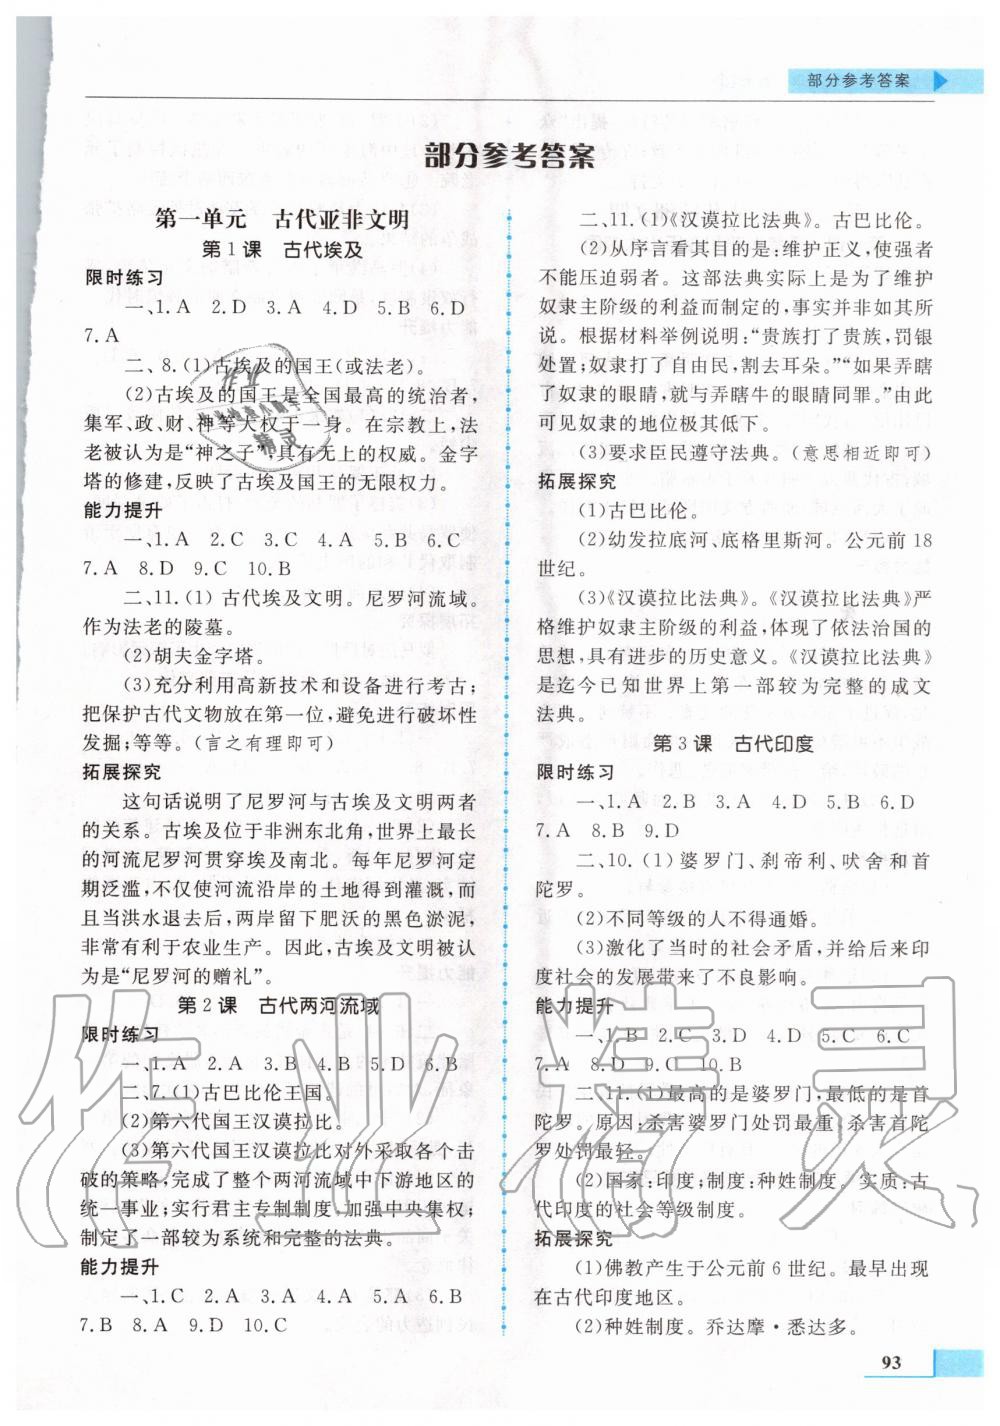 部分参考答案
部分参考答案
第一单元 古代亚非文明
第1课 古代埃及
限时练习
一、1.A 2.D 3.A 4.D 5.B 6.D
7.A
二、8.(1)古埃及的国王(或法老)。
(2)古埃及的国王是全国最高的统治者,
集军、政、财、神等大权于一身。在宗教上,法
老被认为是“神之子”,具有无上的权威。金字
塔的修建,反映了古埃及国王的无限权力。
能力提升
一、1.A 2.C 3.C 4.A 5.B 6.C
7.A 8.D 9.C 10.B
二、11.(1)古代埃及文明。尼罗河流域。
作为法老的陵墓。
(2)胡夫金字塔。
(3)充分利用高新技术和设备进行考古;
把保护古代文物放在第一位,避免进行破坏性
发掘;等等。(言之有理即可)
拓展探究
这句话说明了尼罗河与古埃及文明两者
的关系。古埃及位于非洲东北角,世界上最长
的河流尼罗河贯穿埃及南北。每年尼罗河定
期泛滥,不仅使河流沿岸的土地得到灌溉,而
且当洪水退去后,两岸留下肥沃的黑色淤泥,
非常有利于农业生产。因此,古埃及文明被认
为是“尼罗河的赠礼”。
第2课 古代两河流域
限时练习
一、1.A 2.A 3.B 4.B 5.A 6.B
二、7.(1)古巴比伦王国。
(2)第六代国王汉谟拉比。
(3)第六代国王汉谟拉比对外采取各个击
破的策略,完成了整个两河流域中下游地区的
统一事业;实行君主专制制度,加强中央集权;
制定了一部较为系统和完整的法典。
能力提升
一、1.C 2.A 3.A 4.A 5.A 6.B
7.B 8.A 9.D 10.C
二、11.(1)《汉谟拉比法典》。古巴比伦。
(2)从序言看其目的是:维护正义,使强者
不能压迫弱者。这部法典实际上是为了维护
奴隶主阶级的利益而制定的,事实并非如其所
说。根据材料举例说明:“贵族打了贵族,罚银
处置;奴隶打了自由民,割去耳朵。”“如果弄瞎
了奴隶的眼睛,就与弄瞎牛的眼睛同罪。”由此
可见奴隶的地位极其低下。
(3)要求臣民遵守法典。(意思相近即可)
拓展探究
(1)古巴比伦。
(2)幼发拉底河、底格里斯河。公元前18
世纪。
(3)《汉谟拉比法典》。《汉谟拉比法典》严
格维护奴隶主阶级的利益,体现了依法治国的
思想,具有进步的历史意义。《汉谟拉比法典》
是迄今已知世界上第一部较为完整的成文
法典。
第3课 古代印度
限时练习
一、1.A 2.B 3.A 4.D 5.B 6.D
7.A 8.B 9.D
二、10.(1)婆罗门、刹帝利、吠舍和首
陀罗。
(2)不同等级的人不得通婚。
(3)激化了当时的社会矛盾,并给后来印
度社会的发展带来了不良影响。
能力提升
一、1.B 2.C 3.D 4.D 5.C 6.C
7.A 8.D 9.C 10.B
二、11.(1)最高的是婆罗门,最低的是首
陀罗。原因:杀害婆罗门处罚最重,杀害首陀
罗处罚最轻。
(2)国家:印度;制度:种姓制度。实质:古
代印度的社会等级制度。
拓展探究
(1)佛教产生于公元前6世纪。最早出现
在古代印度地区。
(2)种姓制度。乔达摩·悉达多。
93
作业精灵